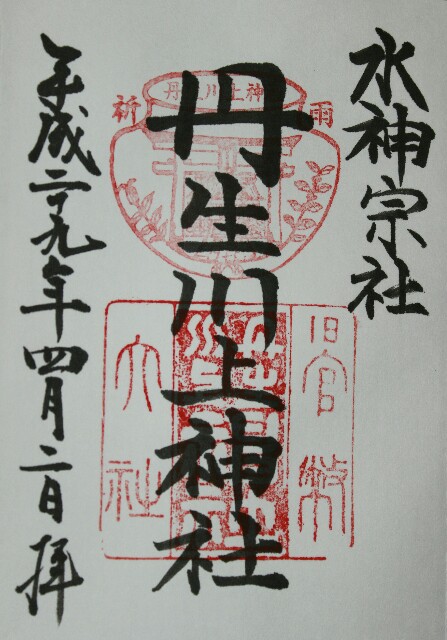 水神宗社
丹生川上神社
平成二十九年四月二日拝
祈雨
丹生川上神
旧官幣
大社